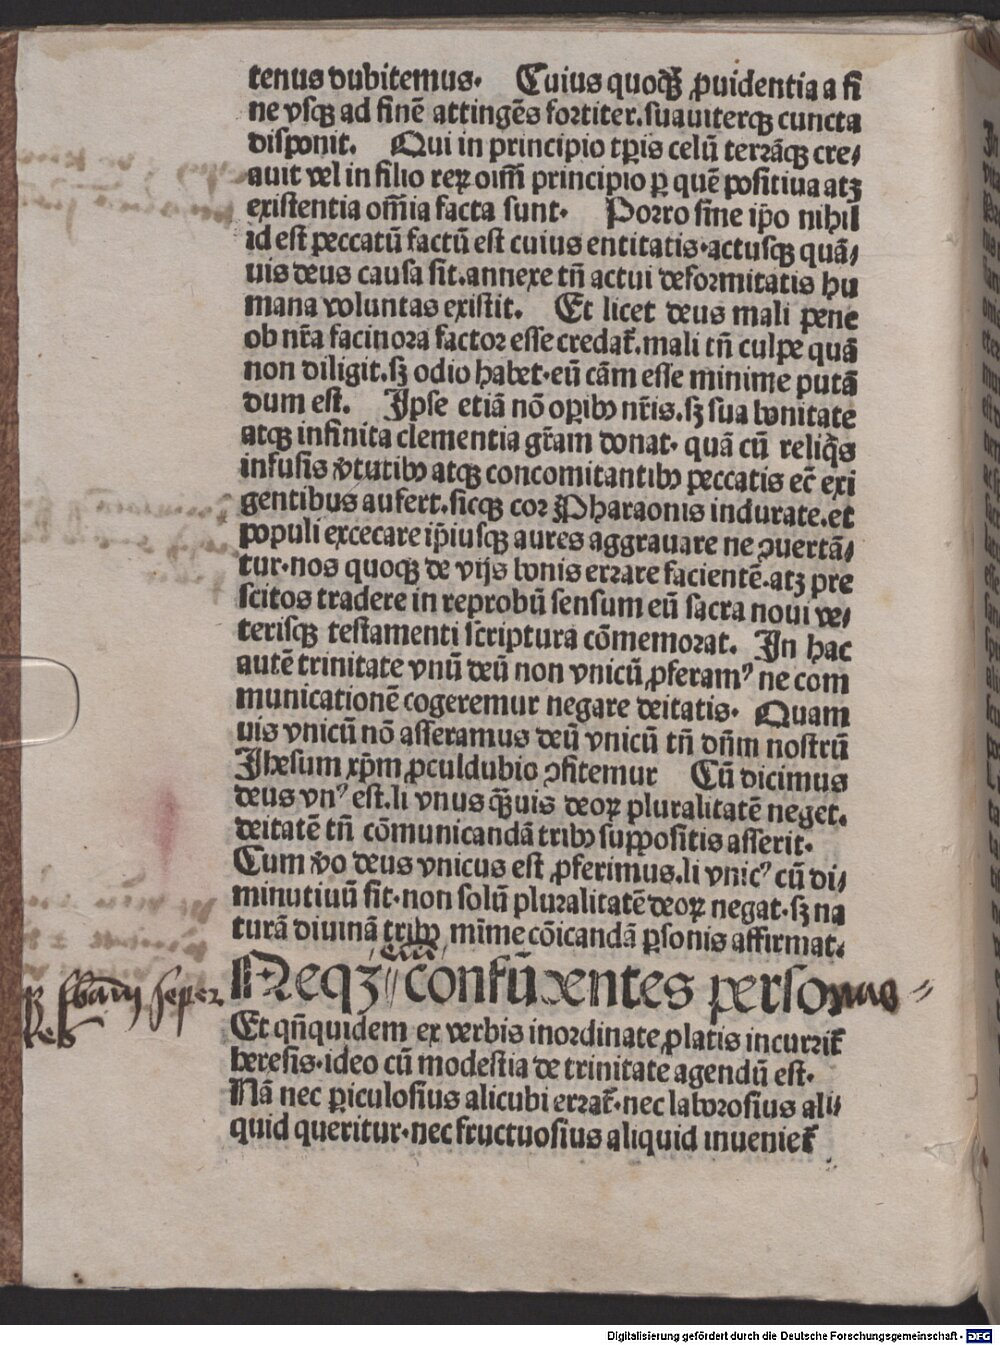 tenus dubitemus. Cuius quoqꝫ ꝓuidentia a fi
ne vsqꝫ ad finē attingēs fortiter. suauiterqꝫ cuncta
disponit. Qui in principio tp̄is celū terrāqꝫ cre/
auit vel in filio reꝝ oīm̄ principio ꝑ quē positiua atqꝫ
existentia om̄ia facta sunt. Porro sine ip̄o nihil
id est peccatū factū est cuius entitatis. actusqꝫ quā/
uis deus causa sit. annexe tn̄ actui deformitatis hu
mana voluntas existit. Et licet deus mali pene
ob nr̄a facinora factor esse credat᷑. mali tn̄ culpe quā
non diligit. sꝫ odio habet. eū cām esse minime putā
dum est. Ipse etiā nō oꝑibꝰ nr̄is. sꝫ sua bonitate
atqꝫ infinita clementia gr̄am donat. quā cū reliq̇s
infusis v̓tutibꝰ atqꝫ concomitantibꝰ peccatis ec̄ exi
gentibus aufert. sicqꝫ cor Pharaonis indurate. et
populi excecare ip̄iusqꝫ aures aggrauare ne ꝯuertā/
tur. nos quoqꝫ de vijs bonis errare facientē. atqꝫ pre
scitos tradere in reprobū sensum eū sacra noui ve/
terisqꝫ testamenti scriptura cōmemorat. In hac
autē trinitate vnū deū non vnicū ꝓferamꝰ ne com
municationē cogeremur negare deitatis. Quam
uis vnicū nō asseramus deū vnicū tn̄ dn̄m nostrū
Jhesum xp̄m ꝓculdubio ꝯfitemur Cū dicimus
deus vnꝰ est. li vnus qͣuis deoꝝ pluralitatē neget.
deitatē tn̄ cōmunicandā tribꝰ suppositis asserit.
Cum v̓o deus vnicus est ꝓferimus. li vnicꝰ cū di/
minutiuū sit. non solū pluralitatē deoꝝ negat. sꝫ na
turā diuinā tribꝰ mīme cōicandā ꝑsonis affirmat.
Neqꝫ confūdentes personas
Et qn̄quidem ex verbis inordinate ꝓlatis incurrit᷑
heresis. ideo cū modestia de trinitate agendū est.
Nā nec ꝑiculosius alicubi errat᷑. nec laborosius ali/
quid queritur. nec fructuosius aliquid inueniet᷑
Digitalisierung gefördert durch die Deutsche Forschungsgemeinschaft - DFG